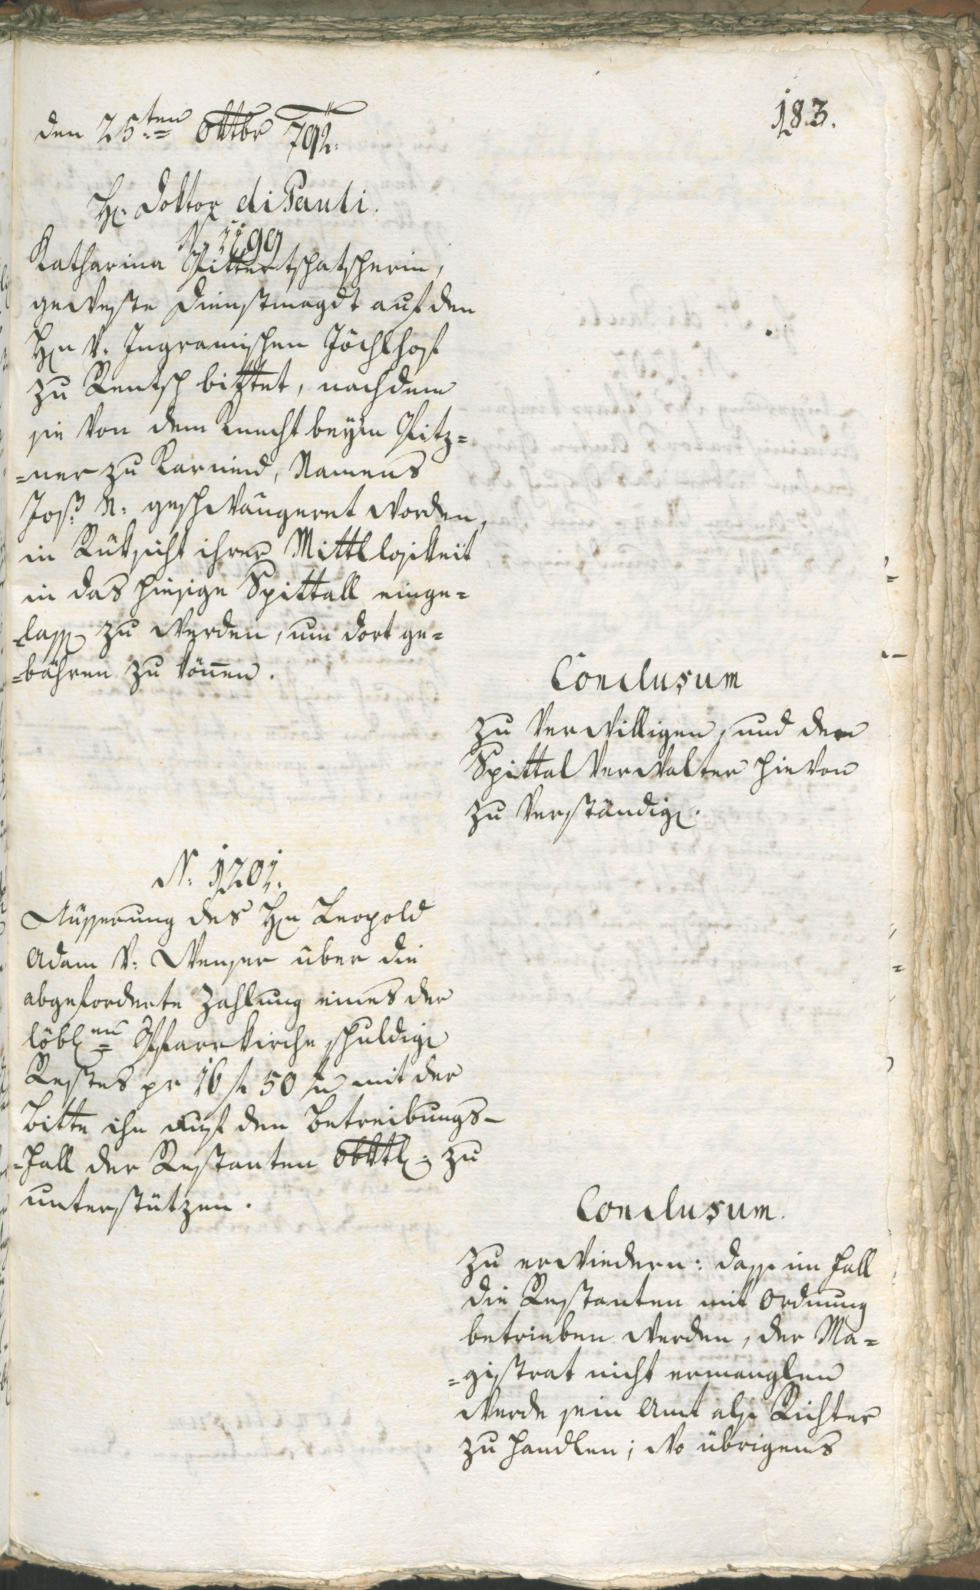 183.
den 25ten Oktbr 792.
H: Doktor di Pauli.
N. 1199
Katharina Pittertschatscherin,
geweste Dienstmagdt auf den
Hn v. Ingramischen Jöchlhof
zu Rentsch bittet, nachdem
sie von dem Knecht beÿm Pitz-
-ner zu Karneid, Namens
Jos: N: geschwängeret worden,
in Rüksicht ihrer Mittllosikeit
in das hiesige Spittall einge-
-lass zu werden, um dort ge-
-bähren zu können.
Conclusum
zu verwilligen, und den
Spittal Verwalter hievon
zu verständig.
N. 1201.
Äüsserung des Hn Leopold
Adam v: Wenser über die
abgeforderte Zahlung eines der
löbl:en Pfarrkirche schuldig
Restes pr 16 f 50 x mit der
Bitte ihn auf den Betreibungs-
-fall der Restanten obktl: zu
unterstützen.
Conclusum.
zu erwiedern: dass im Fall
die Restanten mit Ordnung
betrieben werden, der Ma-
-gistrat nicht ermanglen
werde sein Amt als Richter
zu handlen; wo übrigens